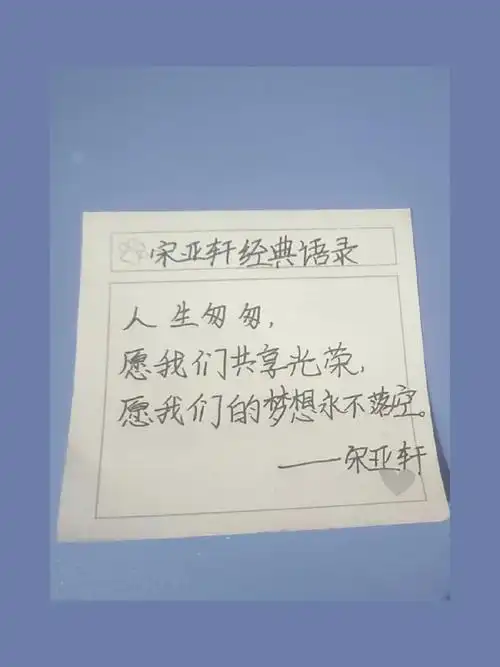 宋亚轩经典语录
人生匆匆,
愿我们共享光荣,
愿我们的梦想永不落空。
——宋亚轩